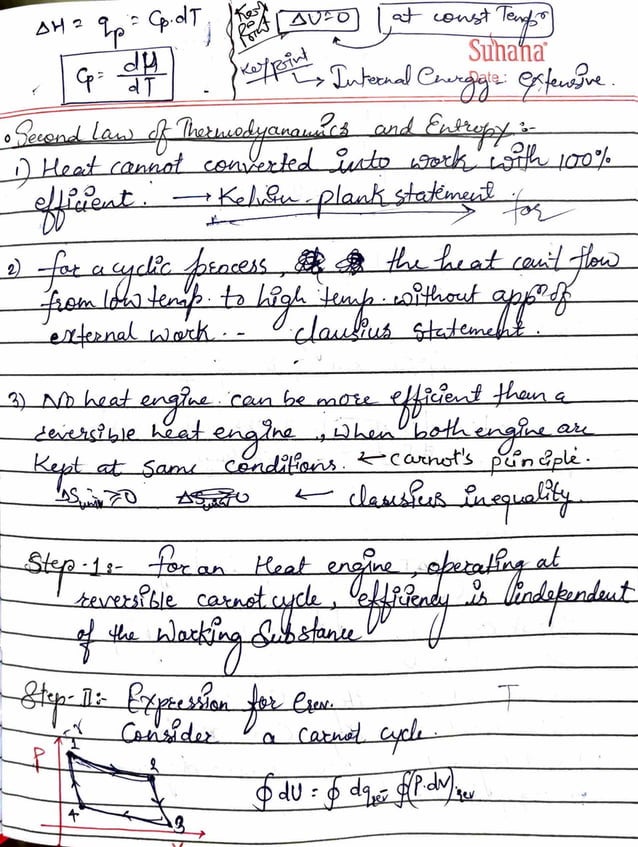 ΔH = qp = Cp.dT
Cp = dH/dT
Key Point ΔU=0 at const Tempr
Suhana
Keypoint → Internal Energy Date: extensive.
Second Law of Thermodyanamics and Entropy :-
1) Heat cannot converted into work with 100%
efficient. → Kelvin-plank statement.
for
2) for a cyclic process, the heat can't flow
from low temp. to high temp. without appn of
external work. - clausius statement.
3) No heat engine can be more efficient than a
reversible heat engine, when both engine are
Kept at same conditions. ← carnot's principle.
ΔSuniv ≥0 ← clausius inequality.
Step-1:- for an Heat engine, operating at
reversible carnot cycle, efficiency is independent
of the Working Substance
Step-II:- Expression for Erev.
T
Consider a carnot cycle.
P 1 2
∮dU = ∮dqrev - ∮(P.dV)rev
4 3
V